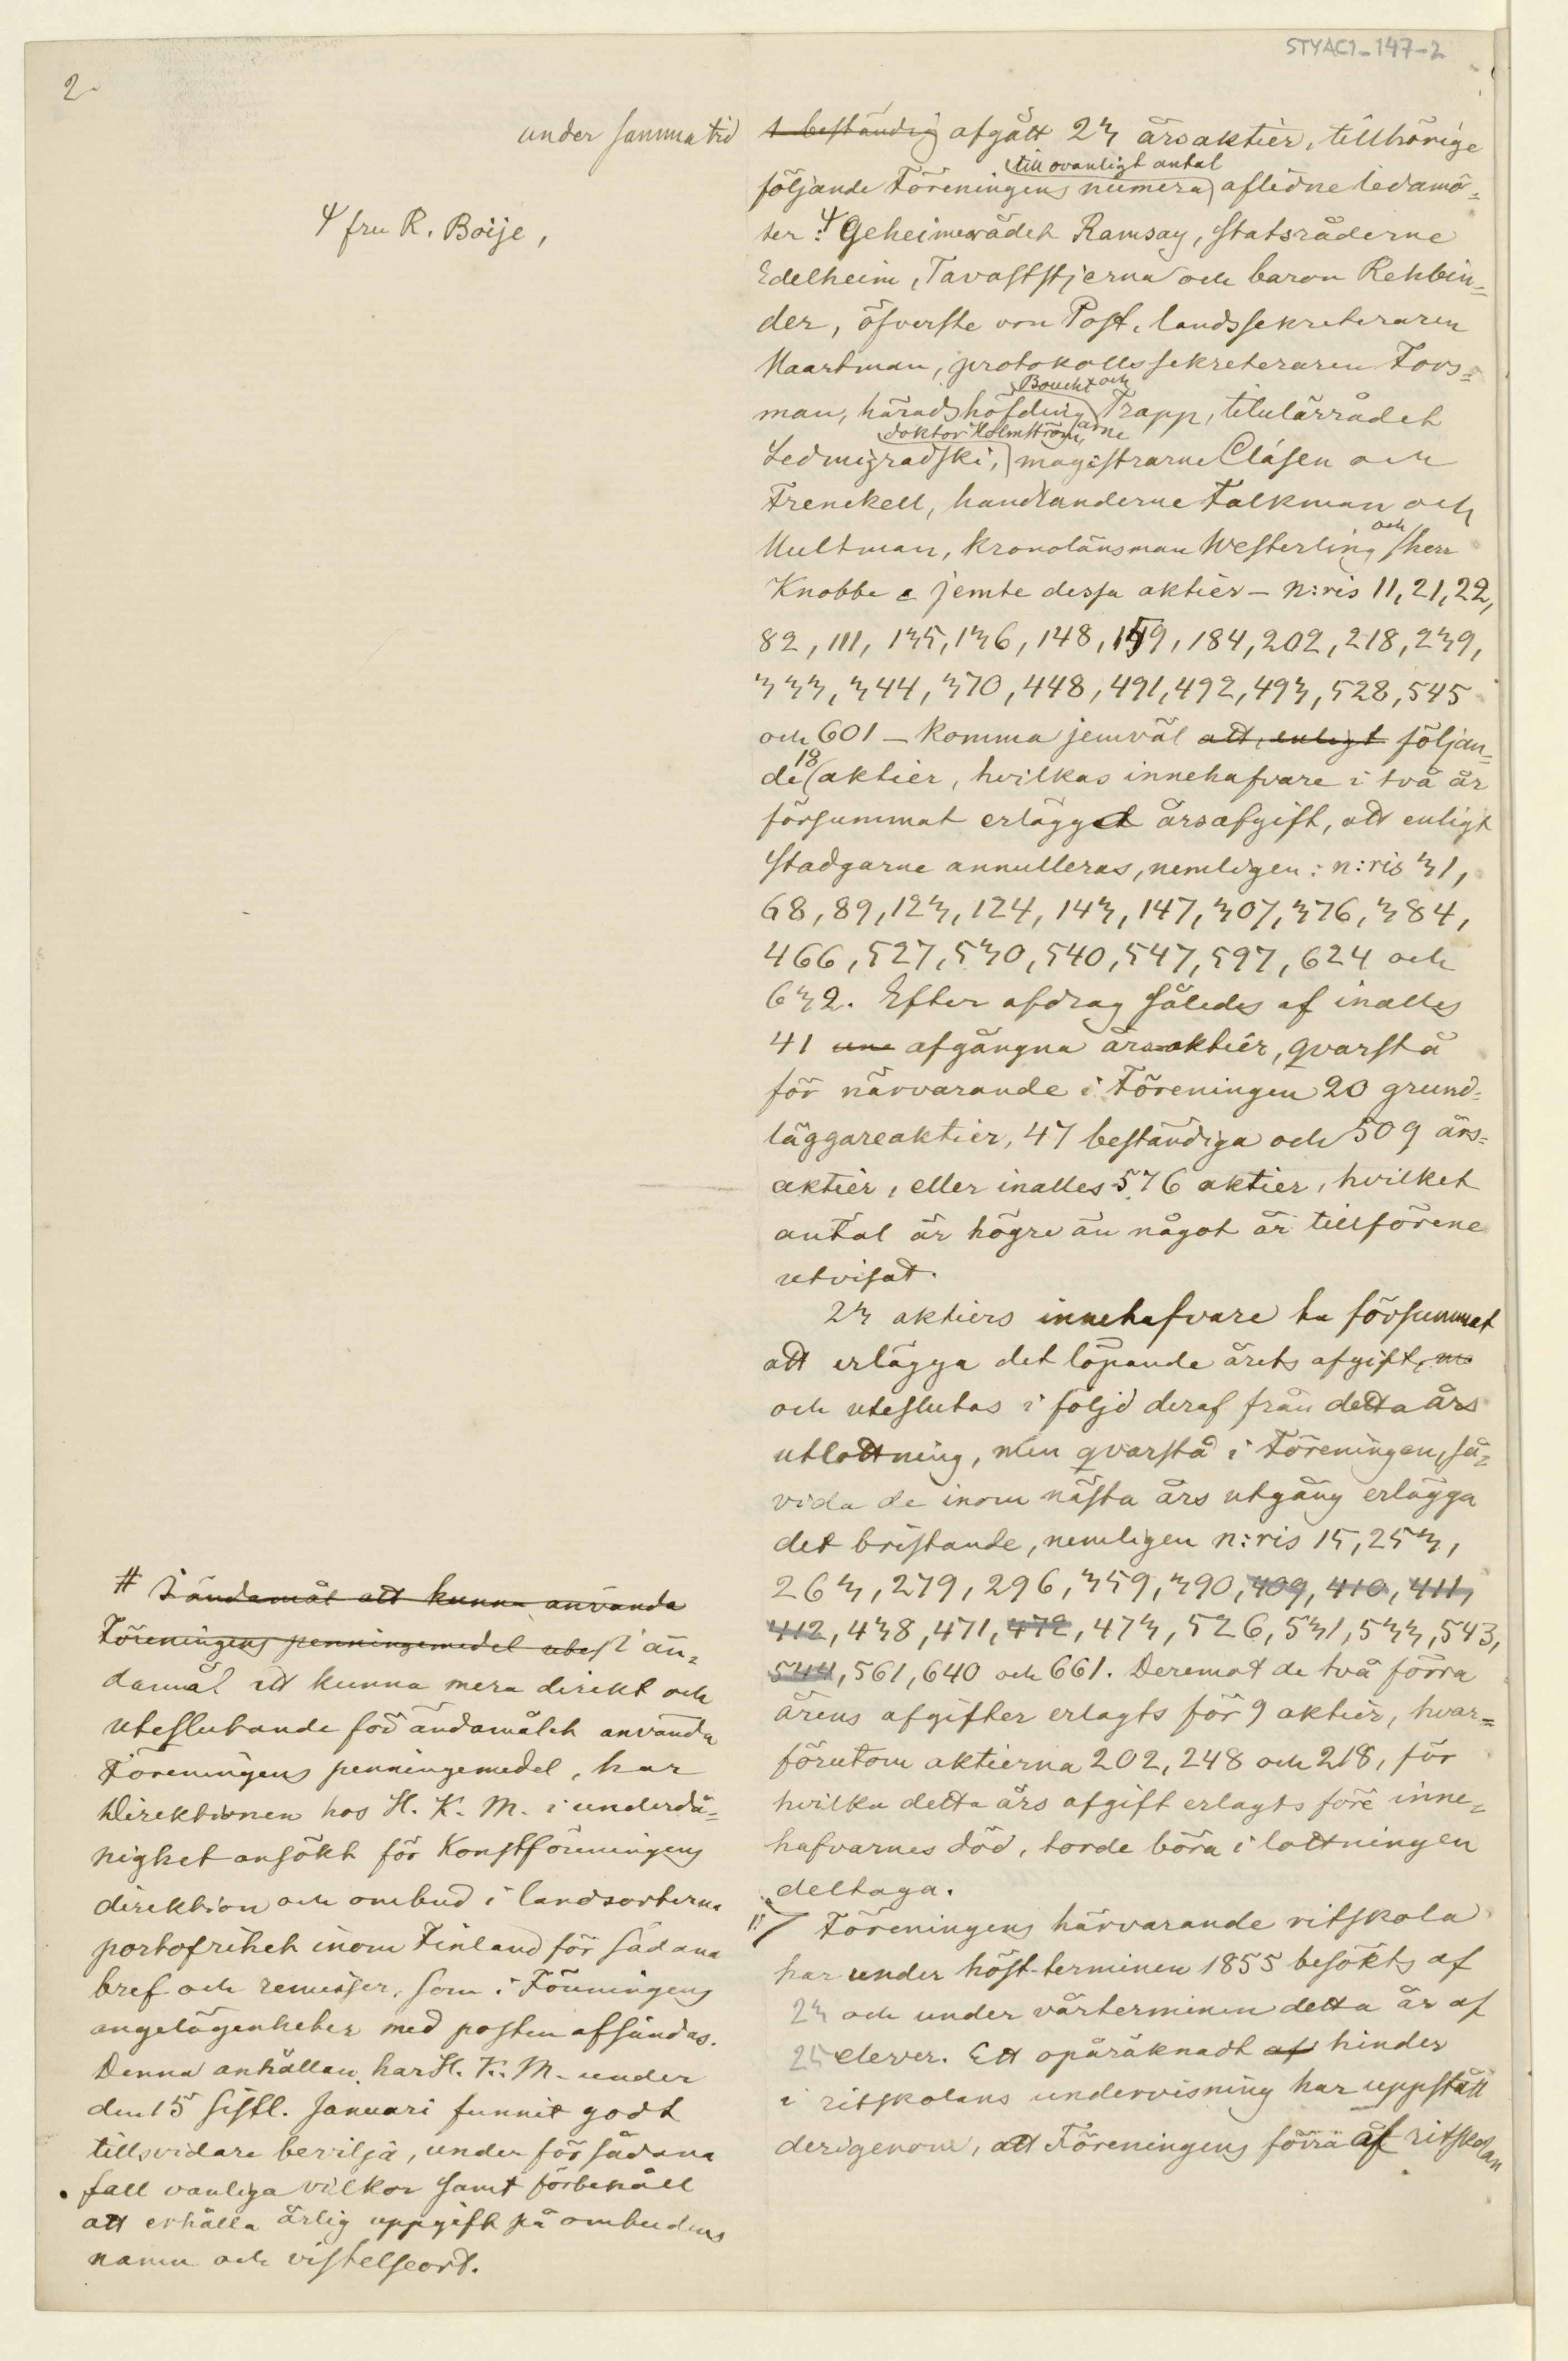 STYAC1-147-2
2
under samma tid
ꝗ fru R. Boije,
1 beständig afgått 23 årsaktier, tillhörige
till ovanligt antal
följande Föreningens numera aflidne ledamö-
ter: Geheimerådet Ramsay, statsråderne
Edelheim, Tavaststjerna och baron Rehbin-
der, öfverste von Post, landssekreteraren
Haartman, protokollssekreteraren Fors-
Boucht och
man, häradshöfding Trapp, titulärrådet
doktor Holmström, arne
Sedmigradski, magistrarne Clásen och
Frenckell, handlanderne Falkman och
och
Hultman, kronolänsman Westerling herr
Knobbe jemte dessa aktier – n:ris 11, 21, 22,
82, 111, 135, 136, 148, 159, 184, 202, 218, 239,
333, 344, 370, 448, 491, 492, 493, 528, 545
och 601 – komma jemväl att, enligt följan-
18
de aktier, hvilkas innehafvare i två år
försummat erlägga årsafgift, att enligt
stadgarne annulleras, nemligen: n:ris 31,
68, 89, 123, 124, 143, 147, 307, 376, 384,
466, 527, 530, 540, 547, 597, 624 och
632. Efter afdrag således af inalles
41 afgångna årsaktier, qvarstå
för närvarande i Föreningen 20 grund-
läggareaktier, 47 beständiga och 509 års-
aktier, eller inalles 576 aktier, hvilket
antal är högre än något år tillförene
utvisat.
23 aktiers innehafvare ha försummat
att erlägga det löpande årets afgift,
och uteslutas i följd deraf från detta års
utlottning, men qvarstå i Föreningen, så-
vida de inom nästa års utgång erlägga
det bristande, nemligen n:ris 15, 253,
263, 279, 296, 359, 390, 409, 410, 411,
412, 438, 471, 472, 473, 526, 531, 533, 543,
544, 561, 640 och 661. Deremot de två förra
årens afgifter erlagts för 9 aktier, hvar-
förutom aktierna 202, 248 och 218, för
hvilka detta års afgift erlagts före inne-
hafvarnes död, torde böra i lottningen
deltaga.
Föreningens härvarande ritskola
har under höst-terminen 1855 besökts af
23 och under vårterminen detta år af
25 elever. Ett opåräknadt af hinder
i ritskolans undervisning har uppstått
derigenom, att Föreningens förra af ritskolan
# I ändamål att kunna använda
Föreningens penningemedel I än-
damål att kunna mera direkt och
uteslutande för ändamålet använda
Föreningens penningemedel, har
Direktionen hos H. K. M. i underdå-
nighet ansökt för Konstföreningens
direktion och ombud i landsorterna
portofrihet inom Finland för sådana
bref och remisser, som i Föreningens
angelägenheter med posten afsändas.
Denna anhållan har H. K. M. under
den 15 sistl. Januari funnit godt
tillsvidare bevilja, under för sådana
fall vanliga vilkor samt förbehåll
att erhålla årlig uppgift på ombudens
namn och vistelseort.